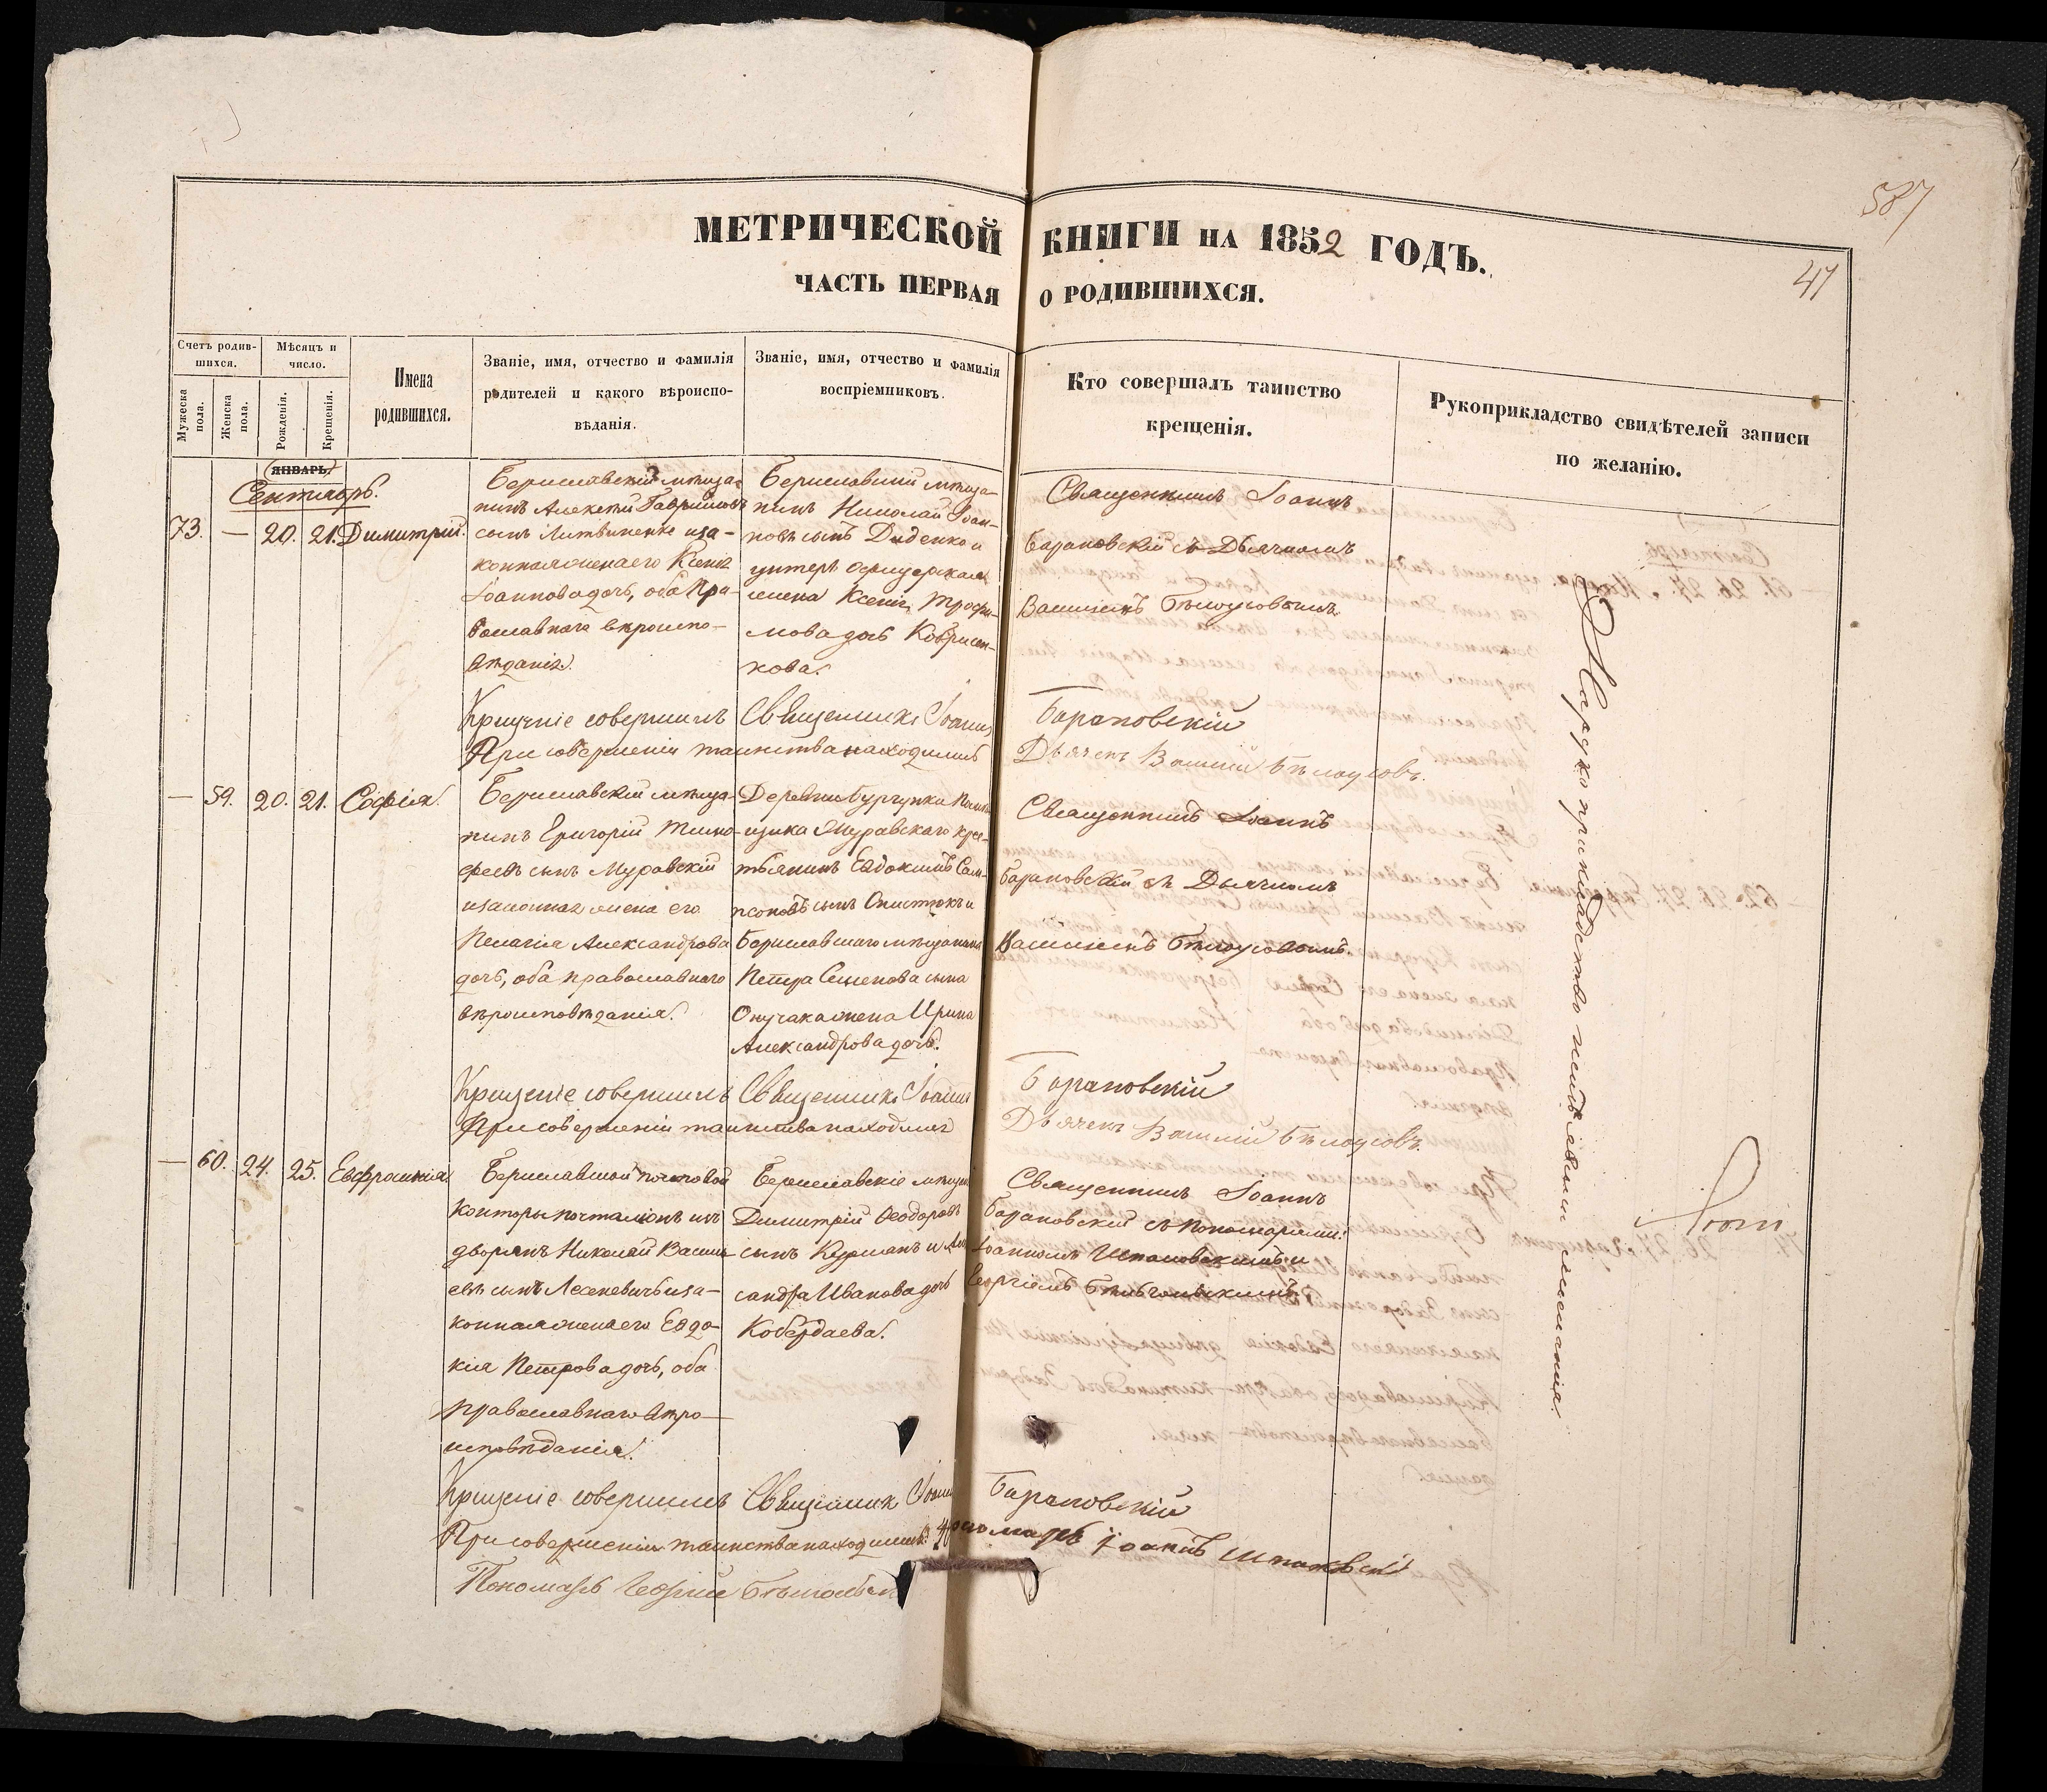 587
МЕТРИЧЕСКОЙ КНИГИ НА 1852 ГОДЪ.
41
ЧАСТЬ ПЕРВАЯ О РОДИВШИХСЯ.
Счетъ родив-
шихся.
Мужеска пола.
Женска пола.
Мѣсяцъ и
число.
Рожденія.
Крещенія.
Имена
родившихся.
Званіе, имя, отчество и фамилія
родителей и какого вѣроиспо-
вѣданія.
Званіе, имя, отчество и фамилія
воспріемниковъ.
Кто совершалъ таинство
крещенія.
Рукоприкладство свидѣтелей записи
по желанію.
ЯНВАРЬ
Сентябрь.
73. — 20. 21. Димитрій.
Бериславскій мѣща-
нинъ Алексѣй Гавриловъ
сынъ Литвиненко и за-
конная жена его Ксенія
Іоаннова дочь, оба Пра-
вославнаго вѣроиспо-
вѣданія.
Бериславскій мѣща-
нинъ Николай Іоан-
новъ сынъ Диденко и
унтеръ офицерская
жена Ксенія Трофи-
мова дочь
Священникъ Іоаннъ
Барановскій съ Дьячкомъ
Василіемъ Бѣлоусовымъ.
Крещеніе совершилъ Священникъ Іоаннъ Барановскій
При совершеніи таинства находился Дьячекъ Василій Бѣлоусовъ.
— 59. 20. 21. Софія.
Бериславскій мѣща-
нинъ Григорій Тимо-
феевъ сынъ Муравскій
и законная жена его
Пелагія Александрова
дочь, оба православнаго
вѣроисповѣданія.
Деревни Бургунки
щика Муравскаго кре-
стьянинъ Евдокимъ Сам-
псоновъ сынъ и
Бериславскаго мѣщанина
Петра Семенова сына
жена Ирина
Александрова дочь.
Священникъ Іоаннъ
Барановскій съ Дьячкомъ
Василіемъ Бѣлоусовымъ.
Крещеніе совершилъ Священникъ Іоаннъ Барановскій
При совершеніи таинства находился Дьячекъ Василій Бѣлоусовъ.
— 60. 24. 25. Евфросинія
Бериславской почтовой
Конторы почталіонъ изъ
дворянъ Николай Василь-
евъ сынъ и за-
конная жена его Евдо-
кія Петрова дочь, оба
православнаго вѣро-
исповѣданія.
Бериславскіе
Димитрій Ѳеодоровъ
сынъ и Алек
сандра Иванова дочь
Кобердаева.
Священникъ Іоаннъ
Барановскій съ Пономарями:
Іоанномъ Шпаковскимъ и
Георгіемъ
Крещеніе совершилъ Священник Іоаннъ Барановскій
При совершеніи таинства находились: Пономарь Іоаннъ Шпаковскій
Пономарь Георгій
Рукоприкладство неизъявили желанія.